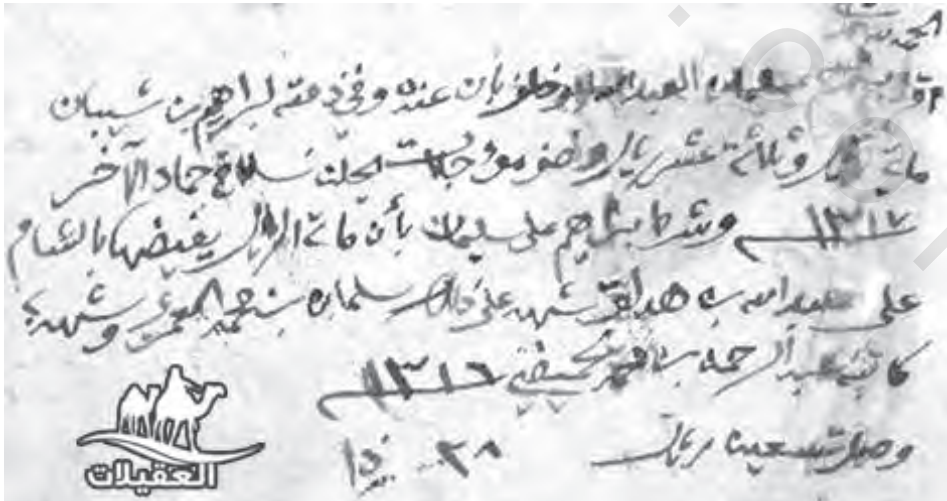 الحمد لله
أقر سليمان العبدالله بأن عنده وفي ذمته لإبراهيم بن شيبان
ماية ريال وثلاثة عشر ريال ونصف مؤجلات يحلن سلاخ جماد الآخر
١٣١٧ وشرط إبراهيم على سليمان بأن ماية الريال يقبضها بالشام
على عبدالله بن شهد على ذلك سليمان بن حمد وشهد به
كاتبه عبد الرحمن بن محمد ١٣١٦
وصل تسعين ريال ٢٨
العقيلات